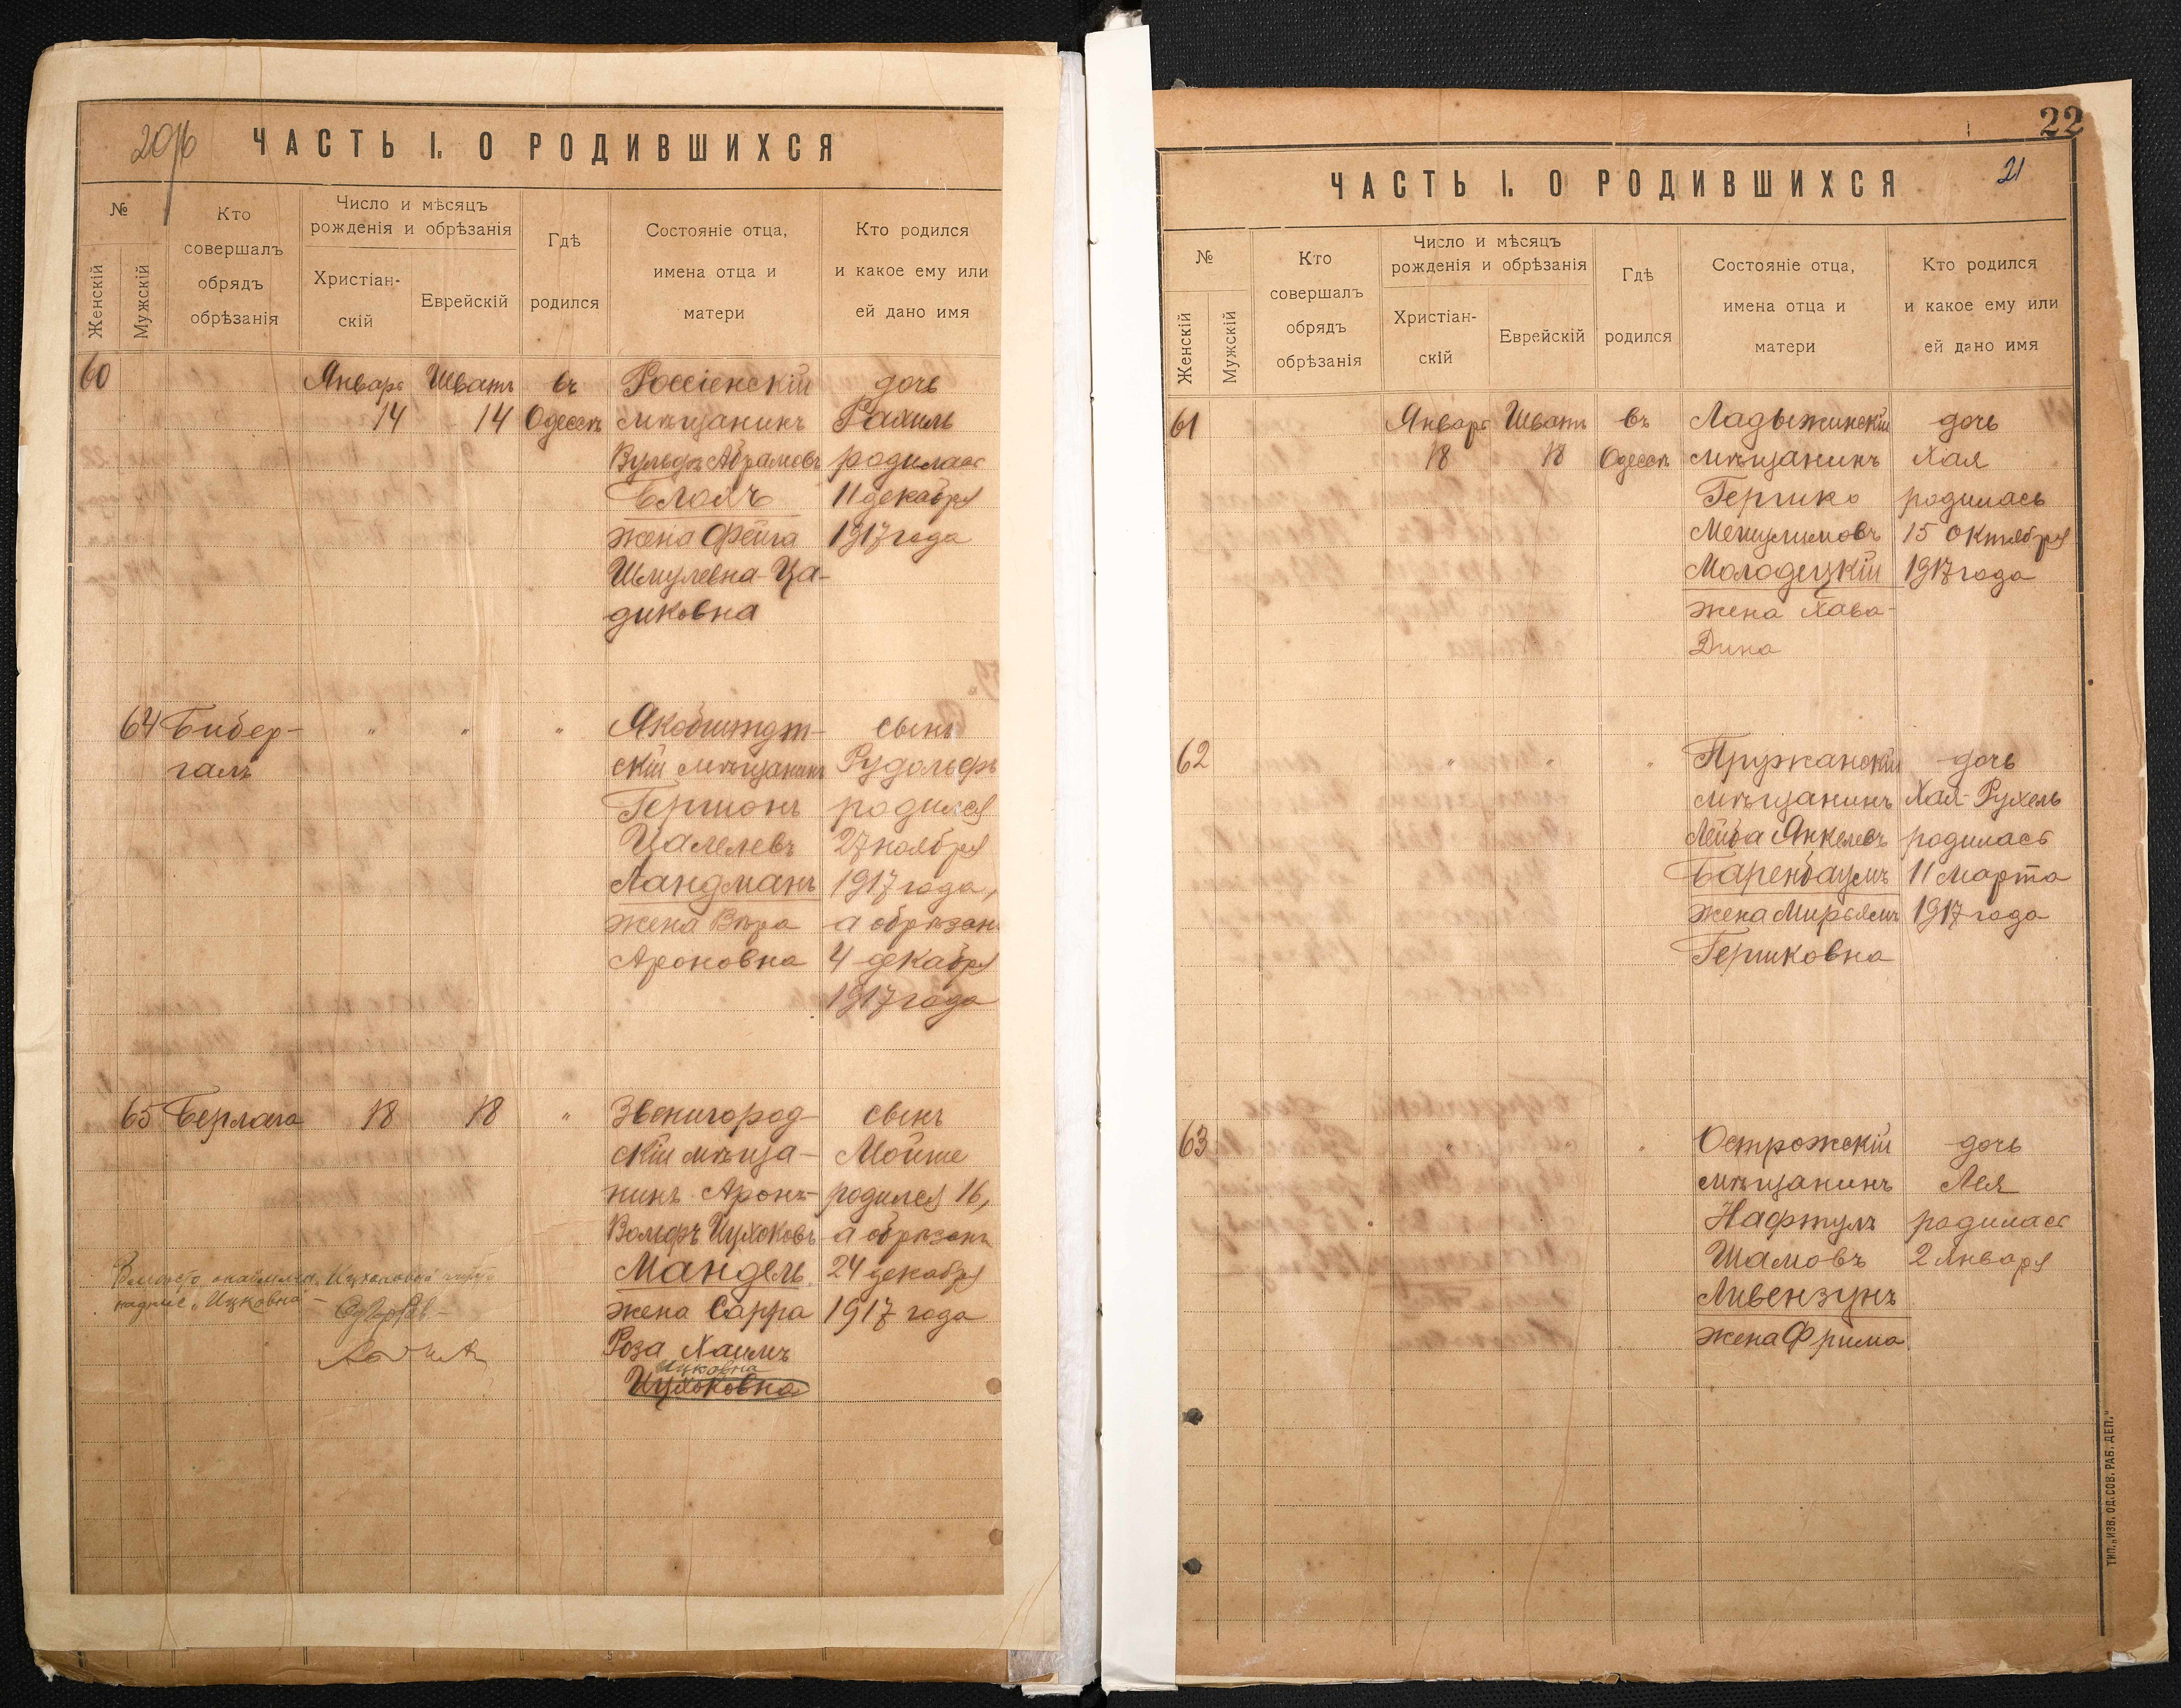 20
ЧАСТЬ I. О РОДИВШИХСЯ
№
Женскій
Мужскій
Кто
совершалъ
обрядъ
обрѣзанія
Число и мѣсяцъ
рожденія и обрѣзанія
Христіан-
скій
Еврейскій
Гдѣ
родился
Состояніе отца,
имена отца и
матери
Кто родился
и какое ему или
ей дано имя
60 Январь Шватъ въ Россіенскій дочь
14 14 Одессѣ мѣщанинъ Рахиль
Вульфъ Абрамовъ родилась
Блохъ 11 декабря
жена Фейга 1917 года
Шмулевна-Ца-
диковна
64 Бибер- " " " Якобштдт- сынъ
галъ скій мѣщанинъ Рудольфъ
Гершонъ родился
Цалелевъ 27 ноября
Ландманъ 1917 года,
жена Вѣра а обрѣзанъ
Ароновна 4 декабря
1917 года
65 Берлага 18 18 " Звенигород-
сынъ
скій мѣща- Мойше
нинъ Аронъ- родился 16,
Вольфъ Ицхоковъ а обрѣзанъ
Мандель 24 декабря
жена Сарра 1917 года
Роза Хаимъ
Ицковна
Ицхоковна
Вмѣсто
надпис. "Ицковна" -
22
21
ЧАСТЬ I. О РОДИВШИХСЯ
№
Женскій
Мужскій
Кто
совершалъ
обрядъ
обрѣзанія
Число и мѣсяцъ
рожденія и обрѣзанія
Христіан-
скій
Еврейскій
Гдѣ
родился
Состояніе отца,
имена отца и
матери
Кто родился
и какое ему или
ей дано имя
61 Январь Шватъ въ Ладыжинскій дочь
18 18 Одессѣ мѣщанинъ Хая
Гершко родилась
Мешулимовъ 15 Октября
Молодецкій 1917 года
жена Хава-
Дина
62 " " " Пружанскій дочь
мѣщанинъ Хая-Рухель
Лейба Янкелевъ родилась
Баренбаумъ 11 Марта
жена Мирьямъ 1917 года
Гершковна
63 " " Острожскій дочь
мѣщанинъ Лея
Нафтулъ родилась
Шамовъ 2 Января
Ливензунъ
жена Фрима
ТИП. „ИЗВ. ОД. СОВ. РАБ. ДЕП."